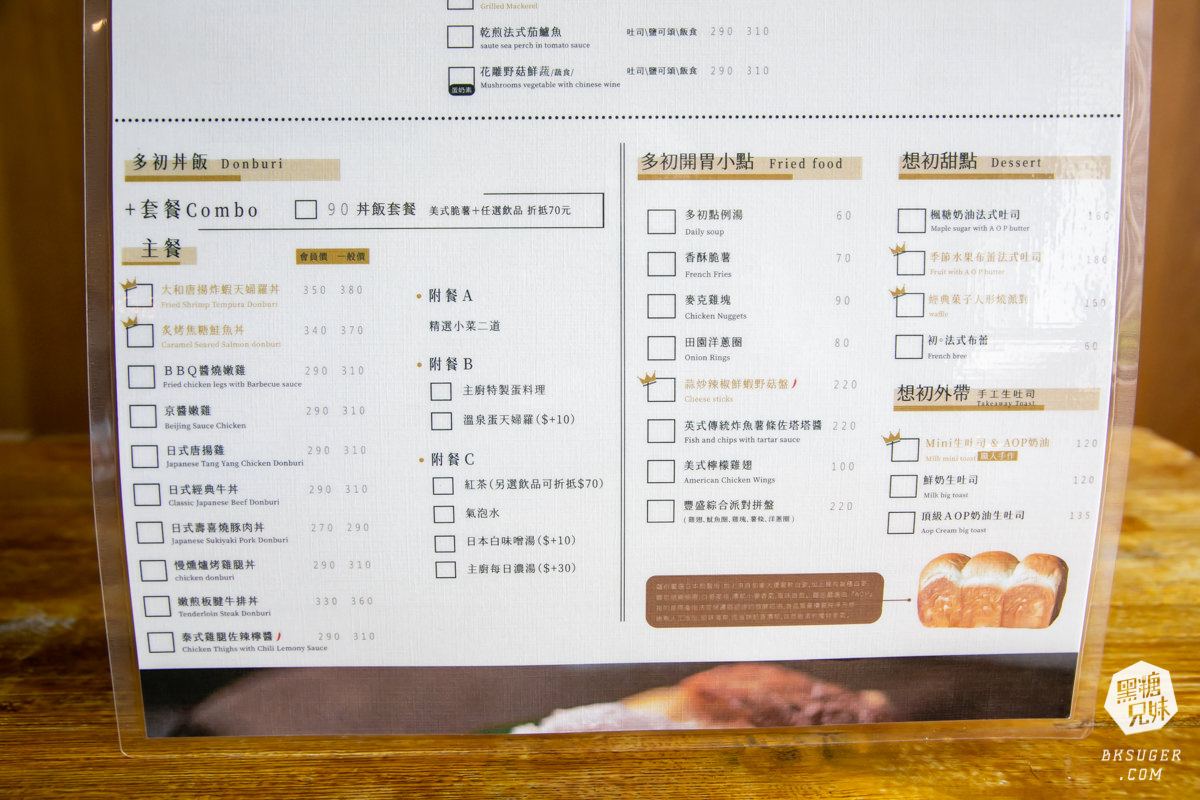 Grilled Mackerel
乾煎法式茄鱸魚 吐司\鹽可頌\飯食 290 310
saute sea perch in tomato sauce
花雕野菇鮮蔬/蔬食/ 吐司\鹽可頌\飯食 290 310
Mushrooms vegetable with chinese wine
蛋奶素
多初丼飯 Donburi
+套餐Combo 90 丼飯套餐 美式脆薯+任選飲品 折抵70元
主餐 會員價 一般價
大和唐揚炸蝦天婦羅丼 350 380
Fried Shrimp Tempura Donburi
炙烤焦糖鮭魚丼 340 370
Caramel Seared Salmon donburi
BBQ醬燒嫩雞 290 310
Fried chicken legs with Barbecue sauce
京醬嫩雞 290 310
Beijing Sauce Chicken
日式唐揚雞 290 310
Japanese Tang Yang Chicken Donburi
日式經典牛丼 290 310
Classic Japanese Beef Donburi
日式壽喜燒豚肉丼 270 290
Japanese Sukiyaki Pork Donburi
慢燻爐烤雞腿丼 290 310
chicken donburi
嫩煎板腱牛排丼 330 360
Tenderloin Steak Donburi
泰式雞腿佐辣檸醬 290 310
Chicken Thighs with Chili Lemony Sauce
附餐A
精選小菜二道
附餐B
主廚特製蛋料理
溫泉蛋天婦羅($+10)
附餐C
紅茶(另選飲品可折抵$70)
氣泡水
日本白味噌湯($+10)
主廚每日濃湯($+30)
多初開胃小點 Fried food
多初點例湯 60
Daily soup
香酥脆薯 70
French Fries
麥克雞塊 90
Chicken Nuggets
田園洋蔥圈 80
Onion Rings
蒜炒辣椒鮮蝦野菇盤 220
Cheese sticks
英式傳統炸魚薯條佐塔塔醬 220
Fish and chips with tartar sauce
美式檸檬雞翅 100
American Chicken Wings
豐盛綜合派對拼盤 220
(雞翅、魷魚圈、雞塊、薯條、洋蔥圈)
想初甜點 Dessert
楓糖奶油法式吐司 160
Maple sugar with A O P butter
季節水果布蕾法式吐司 180
Fruit with A O P butter
經典菓子人形燒派對 150
waffle
初·法式布蕾 60
French bree
想初外帶 手工生吐司
Takeaway Toast
Mini生吐司 & AOP奶油 120
Milk mini toast 職人手作
鮮奶生吐司 120
Milk big toast
頂級AOP奶油生吐司 135
Aop Cream big toast
黑糖兄妹
BKSUGER
.COM